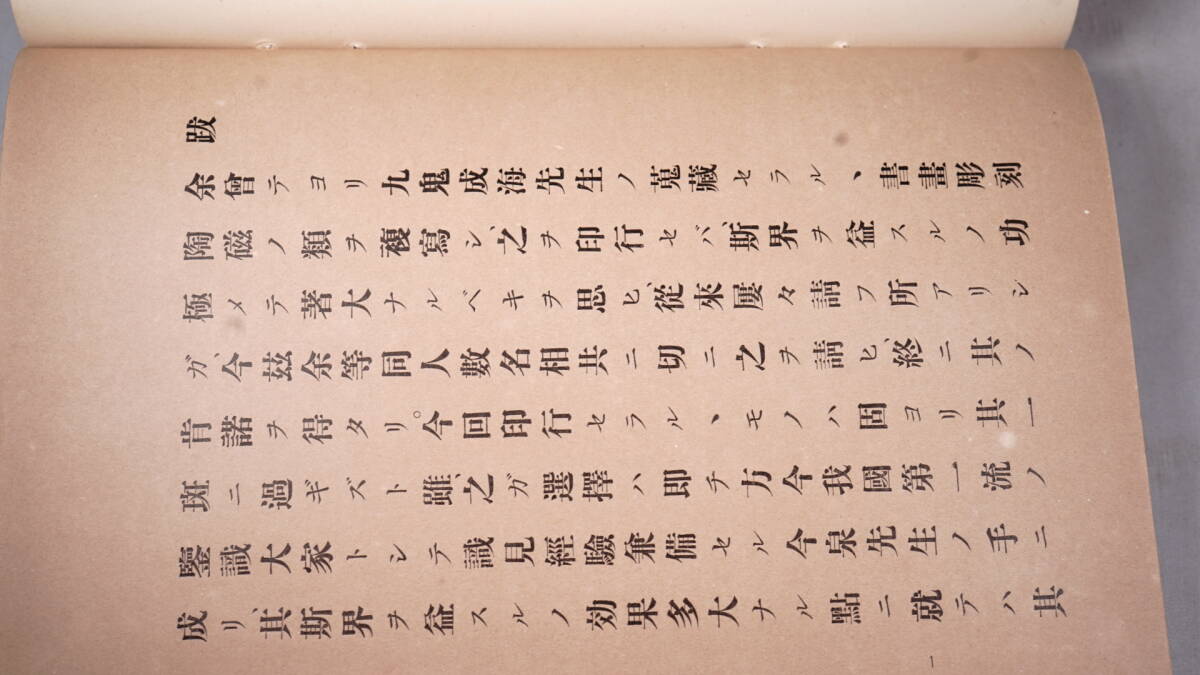 跋
余曾テヨリ九鬼成海先生ノ蒐藏セラルヽ書畫彫刻
陶磁ノ類ヲ複寫シ、之ヲ印行セバ、斯界ヲ益スルノ功
極メテ著大ナルベキヲ思ヒ、從來屢々請フ所アリシ
ガ、今玆余等同人數名相共ニ切ニ之ヲ請ヒ、終ニ其ノ
肯諾ヲ得タリ。今回印行セラルヽモノハ固ヨリ其一
斑ニ過ギズト雖、之ガ選擇ハ卽チ方今我國第一流ノ
鑒識大家トシテ識見經驗兼備セル今泉先生ノ手ニ
成リ、其斯界ヲ益スルノ効果多大ナル點ニ就テハ其
一